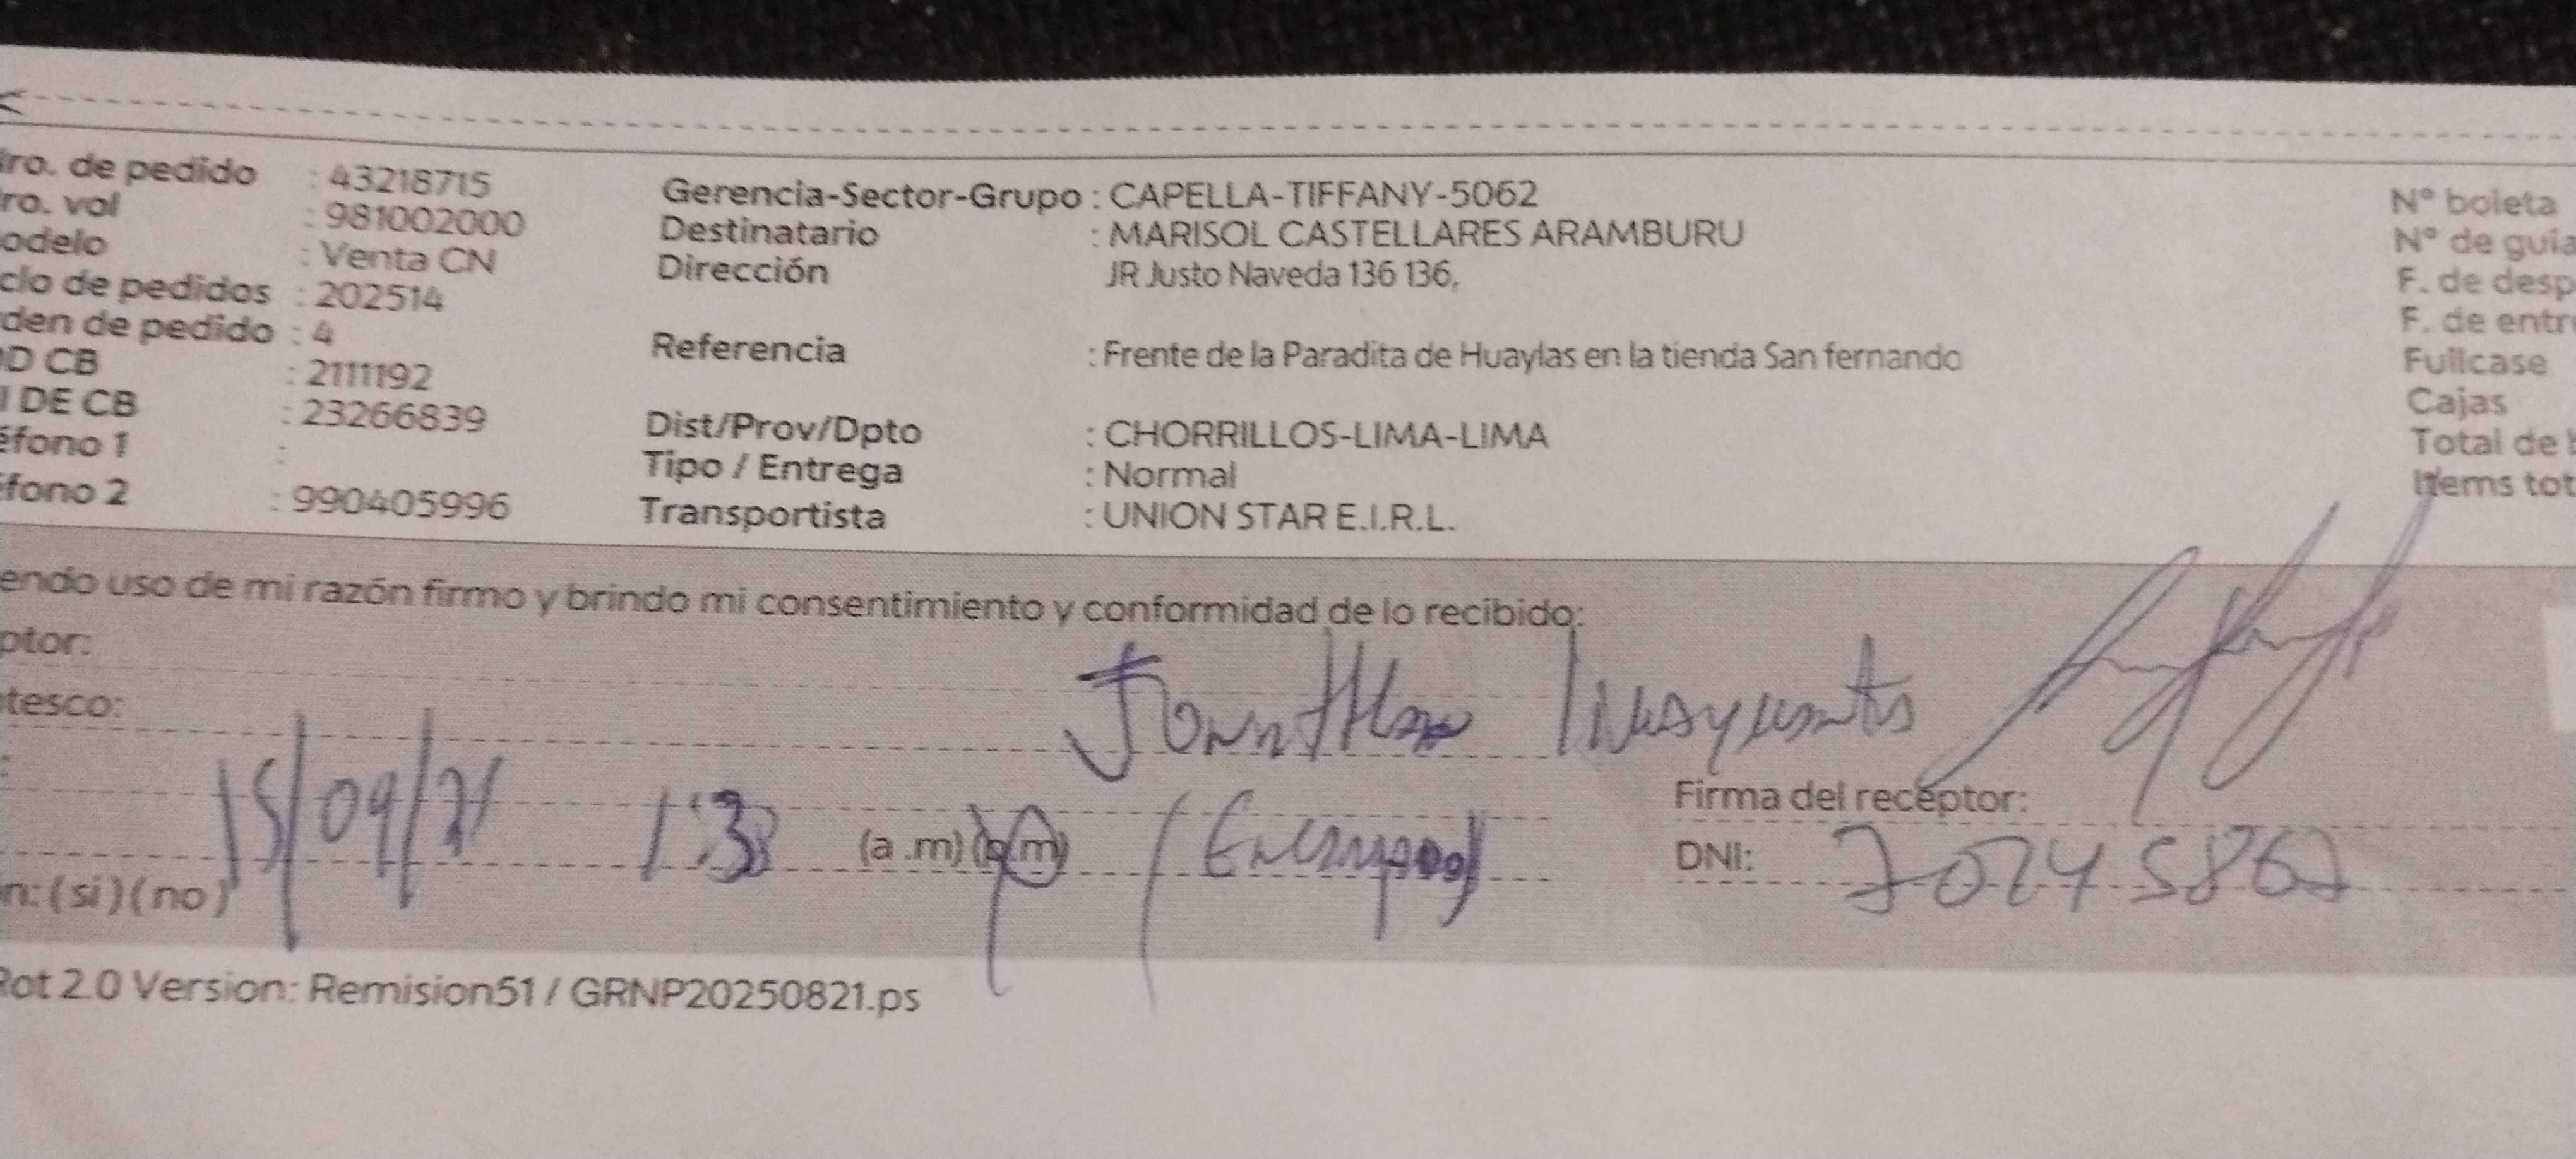 ro. de pedido : 43218715
ro. vol : 981002000
odelo : Venta CN
clo de pedidos : 202514
den de pedido : 4
D CB : 2111192
I DE CB : 23266839
éfono 1 :
éfono 2 : 990405996
Gerencia-Sector-Grupo : CAPELLA-TIFFANY-5062
Destinatario : MARISOL CASTELLARES ARAMBURU
Dirección JR Justo Naveda 136 136,
Referencia : Frente de la Paradita de Huaylas en la tienda San fernando
Dist/Prov/Dpto : CHORRILLOS-LIMA-LIMA
Tipo / Entrega : Normal
Transportista : UNION STAR E.I.R.L.
Nº boleta
Nº de guía
F. de desp
F. de entr
Fullcase
Cajas
Total de
Items tot
endo uso de mi razón firmo y brindo mi consentimiento y conformidad de lo recibido:
ptor:
tesco:
15/09/ (a .m) (p.m)
Firma del receptor:
DNI:
n: ( si ) ( no )
Rot 2.0 Version: Remision51 / GRNP20250821.ps